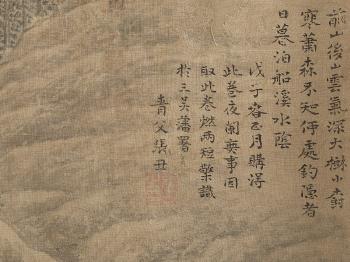 前山後山雲氣深大樹小樹
寒蕭森不知何處釣隱者
日暮泊船溪水陰
戊子客正月購得
此卷夜闌無事因
取此卷燃兩短檠識
於三吳藩署
青父張丑